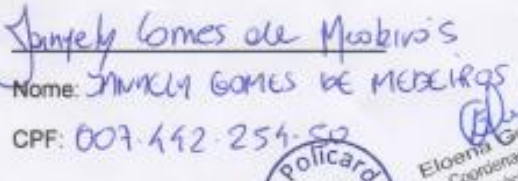 Janyely Gomes de Medeiros
Nome: JANYELY GOMES DE MEDEIROS
CPF: 007.442.254-50
Policard
Eloena
Coordena